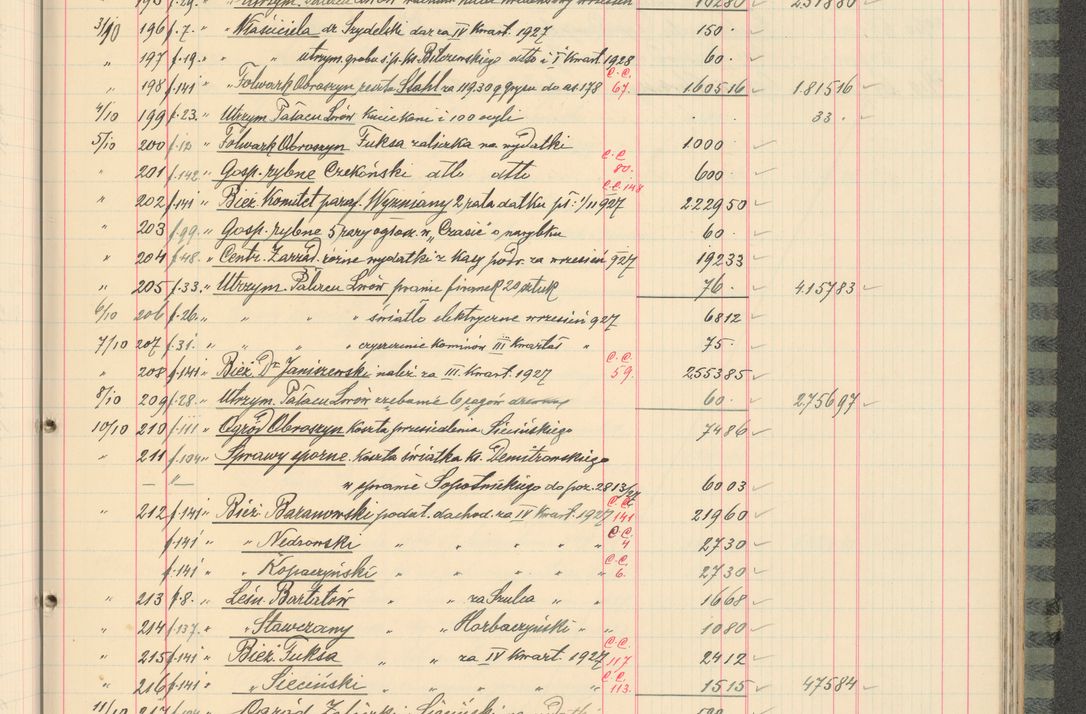 3/10 196 f.7. " " Właściciela dr. Szydelski dar za IV Kwart. 1927 150 ·
" 197 f.19. " " " utrzym. grobu ś.p. ks. Bilczewskiego dtto i I Kwart. 1928 60 ·
" 198 f.141 " Folwark Obroszyn Stahl za 119.30 q grysu do as. 178 C.C. 67. 1605 16 1.815 16
4/10 199 f.23. " Utrzym. Pałacu Lwów i 100 33 ·
5/10 200 " Folwark Obroszyn Fuksa zaliczka na wydatki 1000
" 201 f.142 " Gosp. rybne Czekoński dtto dtto C.C. 80. 600 ·
" 202 f.141 " Bież. Komitet paraf. Wyżniany 2 rata datku pł. 1/11 927 C.C. 148 2229 50
" 203 f.99. " Gosp. rybne 5 razy ogłosz. w " o narybku 60 ·
" 204 f.48. " Centr. Zarząd. różne wydatki z Kasy podr. za wrzesień 927 192 33
" 205 f.33. " Utrzym. Pałacu Lwów pranie firanek 20 sztuk 76 · 4.157 83
6/10 206 f.26. " " " " światło elektryczne wrzesień 927 68 12
7/10 207 f.31. " " " " czyszczenie kominów III Kwartał " 75 ·
" 208 f.141 " Bież. Dr Janiszewski należ. za III. Kwart. 1927 C.C. 59. 2553 85
8/10 209 f.28. " Utrzym. Pałacu Lwów 6 sągów 60 · 2.756 97
10/10 210 f.111 " Ogród Obroszyn Koszta przesiedlenia Siecińskiego 74 86
" 211 f.104 " Sprawy sporne. Koszta świadka ks. Demitrowskiego
— " w sprawie Sopotnickiego do poz. 2813/27 60 03
" 212 f.141 " Bież. Baranowski podat. dochod. za IV Kwart. 1927 C.C. 141 219 60
f.141 " " Nedrowski " " " " C.C. 4 27 30
f.141 " " Kopaczyński " " " " " C.C. 6. 27 30
" 213 f.8. " Leśn. Bartatów " " za Szulca " " 16 68
" 214 f.137. " " Stawczany " " Horbaczyński " " 10 80
" 215 f.141 " Bież. Fuksa " " za IV Kwart. 1927 C.C. 117 24 12
" 216 f.141 " " Sieciński " " " " " C.C. 113. 15 15 475 84
11/10 217